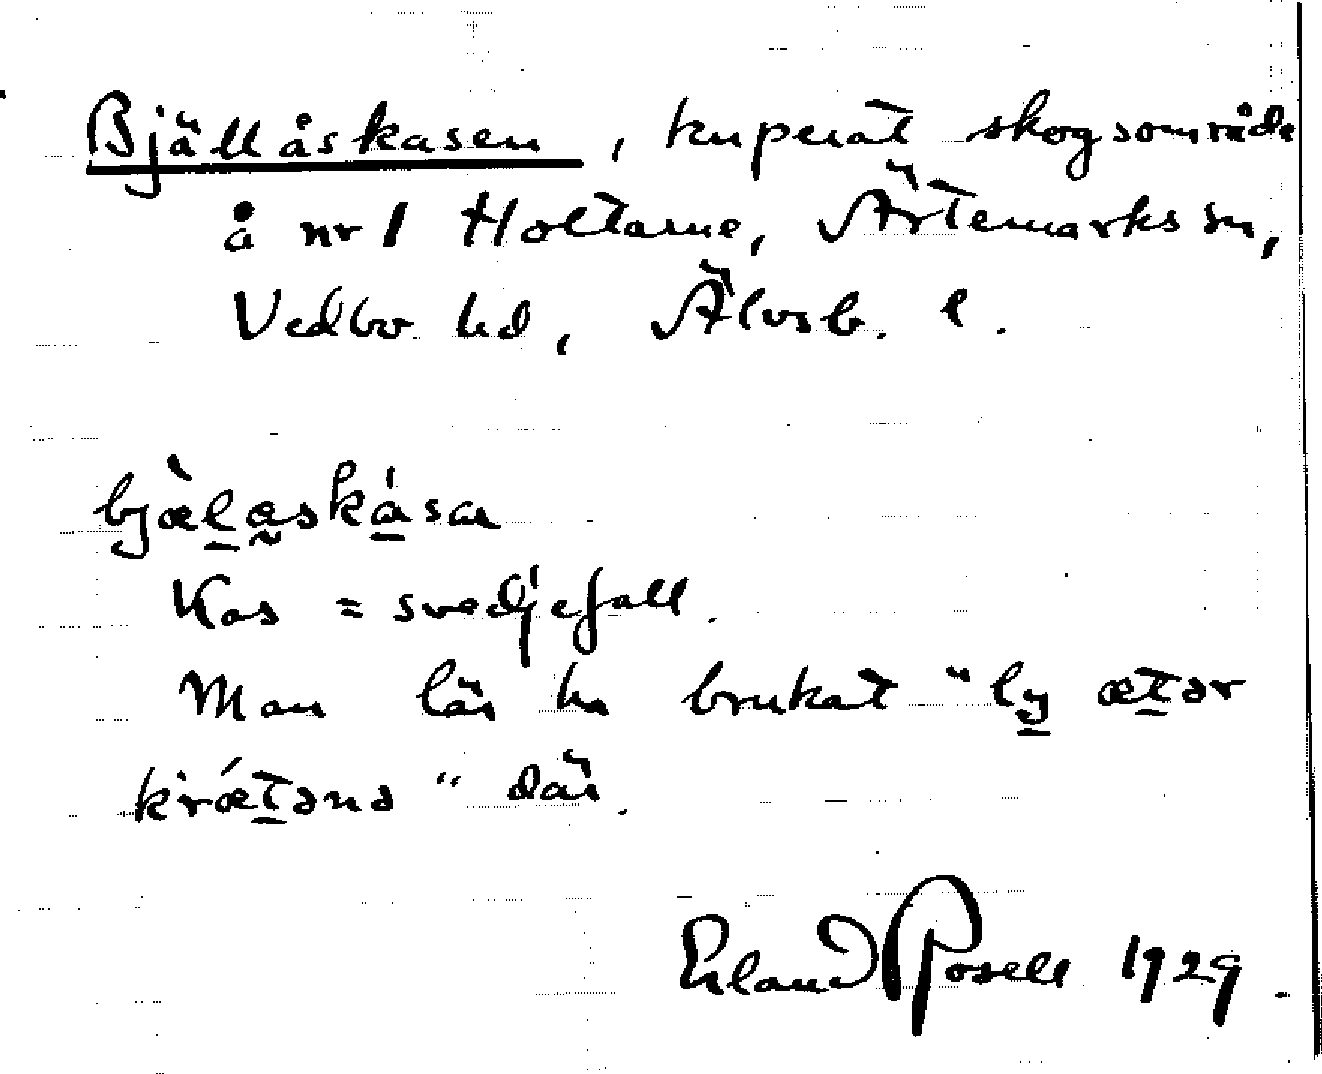 Bjällåskasen, kuperat skogsområde
å nr 1 Holtarne, Ärtemarks sn,
Vedbo hd, Älvsb. l.
bjæ̀l̠a̰ská̠sa
Kas = svedjefall.
Man lär ha brukat "ly̠ æt̠ər
krǽt̠ənə" där.
Erland Rosell 1929.